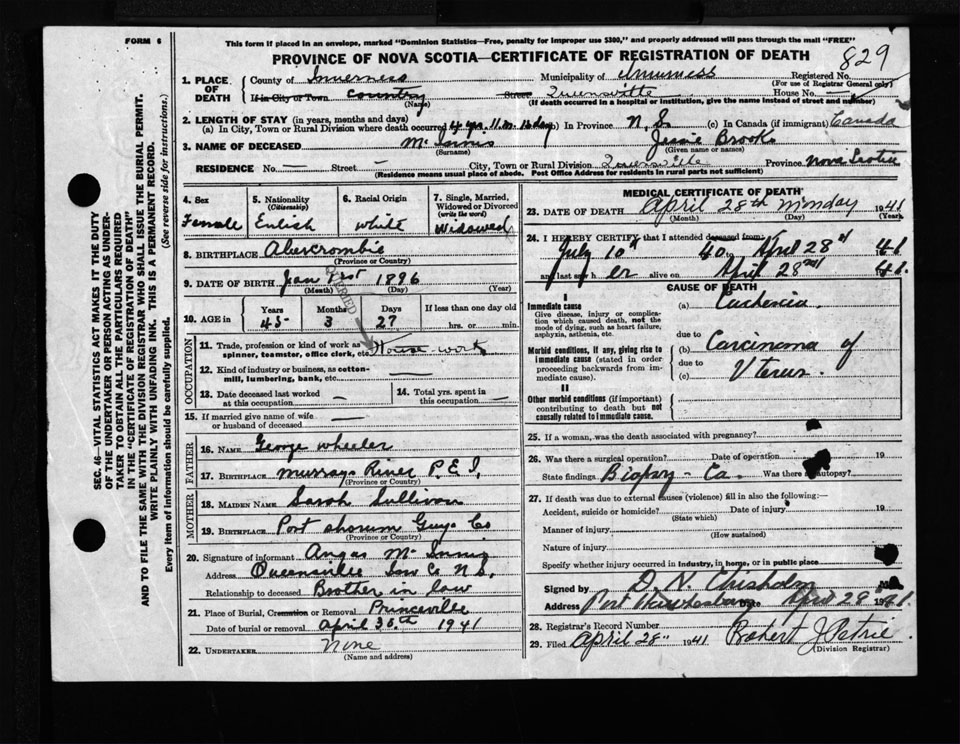 FORM 6
This form if placed in an envelope, marked "Dominion Statistics—Free, penalty for improper use $300," and properly addressed will pass through the mail "FREE"
PROVINCE OF NOVA SCOTIA—CERTIFICATE OF REGISTRATION OF DEATH
829
1. PLACE OF DEATH
County of Inverness Municipality of Inverness Registered No.
(For use of Registrar General only)
If in City or Town Country Street Queensville House No. —
(Name) (If death occurred in a hospital or institution, give the name instead of street and number)
2. LENGTH OF STAY (in years, months and days)
(a) In City, Town or Rural Division where death occurred 4 yr. 11 m. days (b) In Province N. S. (c) In Canada (if immigrant) Canada
3. NAME OF DECEASED Mc Innis Jessie Brook
(Surname) (Given name or names)
RESIDENCE No. — Street — City, Town or Rural Division Queensville Province Nova Scotia
(Residence means usual place of abode. Post Office Address for residents in rural parts not sufficient)
4. Sex
Female
5. Nationality (Citizenship)
Enlish
6. Racial Origin
white
7. Single, Married, Widowed or Divorced (write the word)
Widowed
8. BIRTHPLACE Abercrombie
(Province or Country)
9. DATE OF BIRTH Jan 1st 1896
(Month) (Day) (Year)
10. AGE in
Years Months Days If less than one day old
45 3 27 hrs. or min.
OCCUPATION
11. Trade, profession or kind of work as spinner, teamster, office clerk, etc. House-work
12. Kind of industry or business, as cotton-mill, lumbering, bank, etc.
13. Date deceased last worked at this occupation —
14. Total yrs. spent in this occupation —
15. If married give name of wife or husband of deceased —
FATHER
16. NAME George Wheeler
17. BIRTHPLACE Murrays River P.E.I.
(Province or Country)
MOTHER
18. MAIDEN NAME Sarah Sullivan
19. BIRTHPLACE Port shorum Guys Co
(Province or Country)
20. Signature of informant Angas Mc Innis
Address Queensville Inv Co N.S.
Relationship to deceased Brother in law
21. Place of Burial, Cremation or Removal Princeville
Date of burial or removal April 30th 1941
22. UNDERTAKER None
(Name and address)
MEDICAL CERTIFICATE OF DEATH
23. DATE OF DEATH April 28th Monday 1941
(Month) (Day) (Year)
24. I HEREBY CERTIFY that I attended deceased from:
July 10th 40 to April 28th 41
and last saw her alive on April 28th 41.
CAUSE OF DEATH
I
Immediate cause (a) Cachexia
Give disease, injury or complication which caused death, not the mode of dying, such as heart failure, asphyxia, asthenia, etc.
due to
Morbid conditions, if any, giving rise to immediate cause (stated in order proceeding backwards from immediate cause).
(b) Carcinoma of
due to
(c) Uterus.
II
Other morbid conditions (if important) contributing to death but not causally related to immediate cause.
25. If a woman, was the death associated with pregnancy?
26. Was there a surgical operation? Date of operation 19
State findings Biopsy - Ca. Was there autopsy?
27. If death was due to external causes (violence) fill in also the following:—
Accident, suicide or homicide? Date of injury 19
(State which)
Manner of injury
(How sustained)
Nature of injury
Specify whether injury occurred in industry, in home, or in public place
Signed by D. N. Chisholm
Address Port Hawkesbury Date April 28 1941.
28. Registrar's Record Number
29. Filed April 28" 1941 Robert J Petrie.
(Division Registrar)
SEC. 46—VITAL STATISTICS ACT MAKES IT THE DUTY OF THE UNDERTAKER OR PERSON ACTING AS UNDERTAKER TO OBTAIN ALL THE PARTICULARS REQUIRED IN THE "CERTIFICATE OF REGISTRATION OF DEATH" AND TO FILE THE SAME WITH THE DIVISION REGISTRAR WHO SHALL ISSUE THE BURIAL PERMIT.
WRITE PLAINLY WITH UNFADING INK. THIS IS A PERMANENT RECORD.
Every item of information should be carefully supplied. (See reverse side for instructions.)